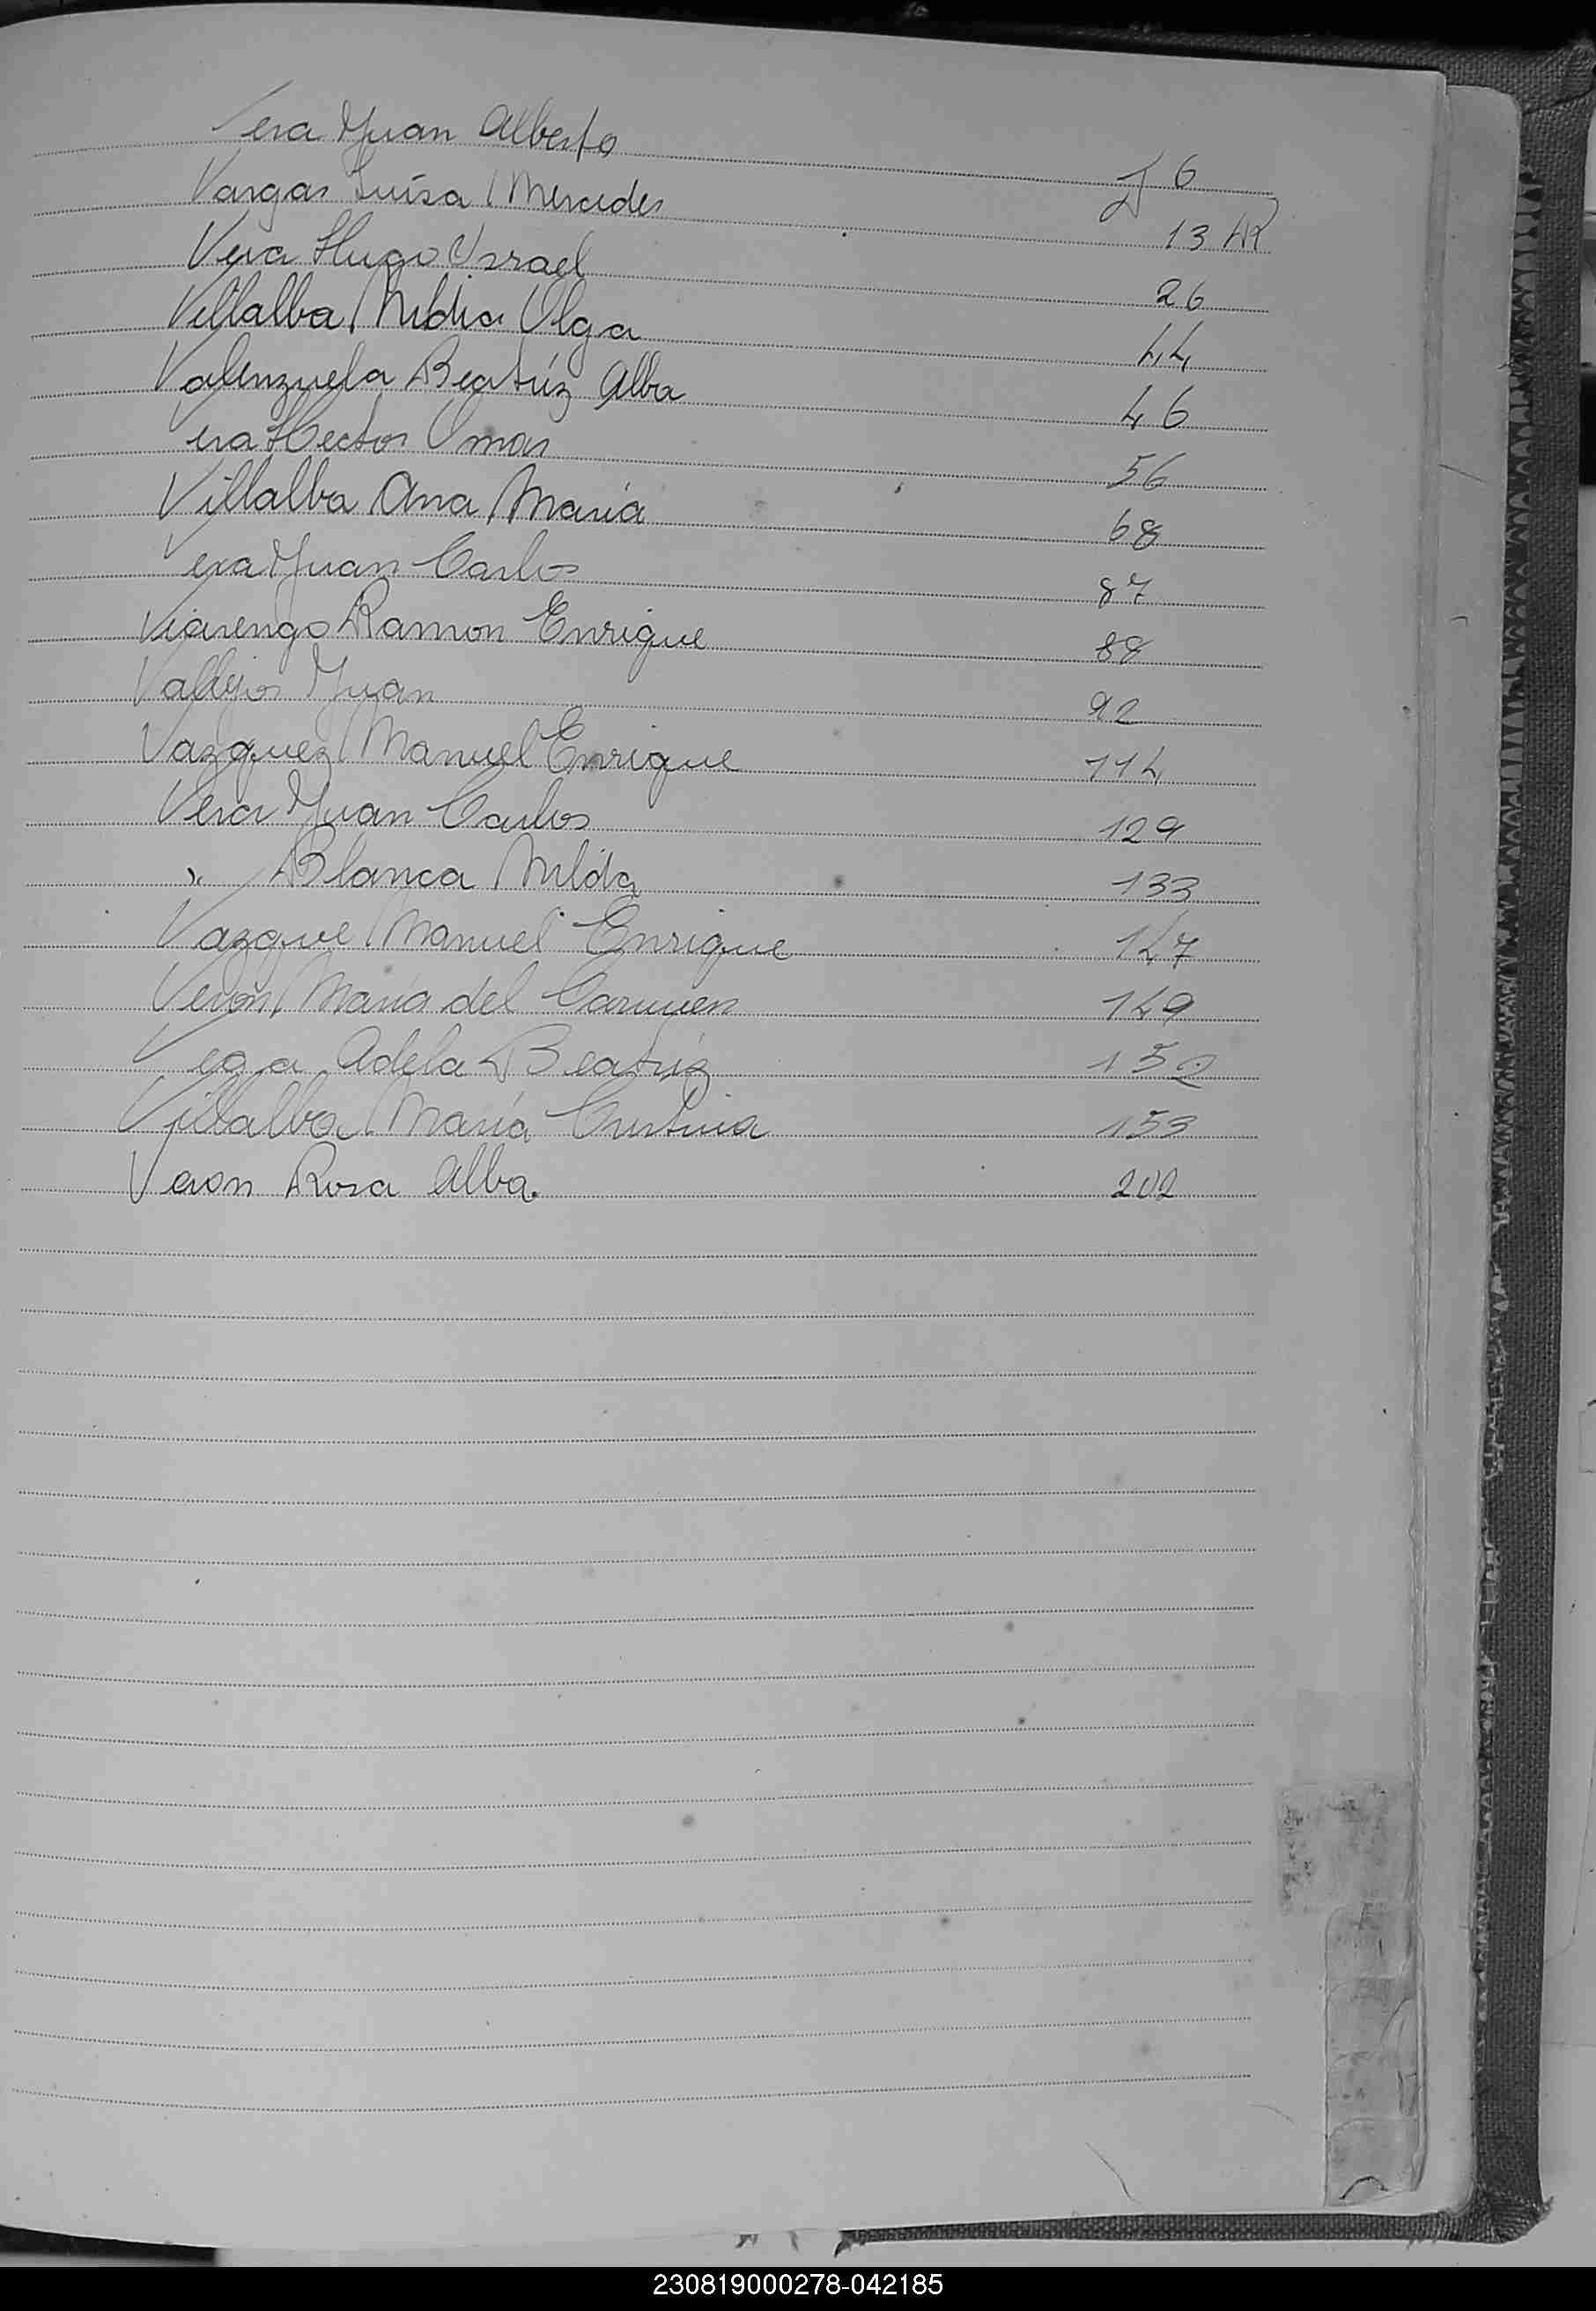 Vera Juan Alberto 6
Vargas Luisa Mercedes 13 AR
Vera Hugo Israel 26
Villalba Nidia Olga 44
Valenzuela Beatríz Alba 46
Vera Hector Omar 56
Villalba Ana María 68
Vera Juan Carlos 87
Viarengo Ramon Enrique 88
Vallejos Juan 92
Vazquez Manuel Enrique 114
Vera Juan Carlos 129
" Blanca Nilda 133
Vazque Manuel Enrique 147
Verón María del Carmen 149
Vega Adela Beatríz 152
Villalba María Cristina 153
Veron Rosa Alba. 202
230819000278-042185